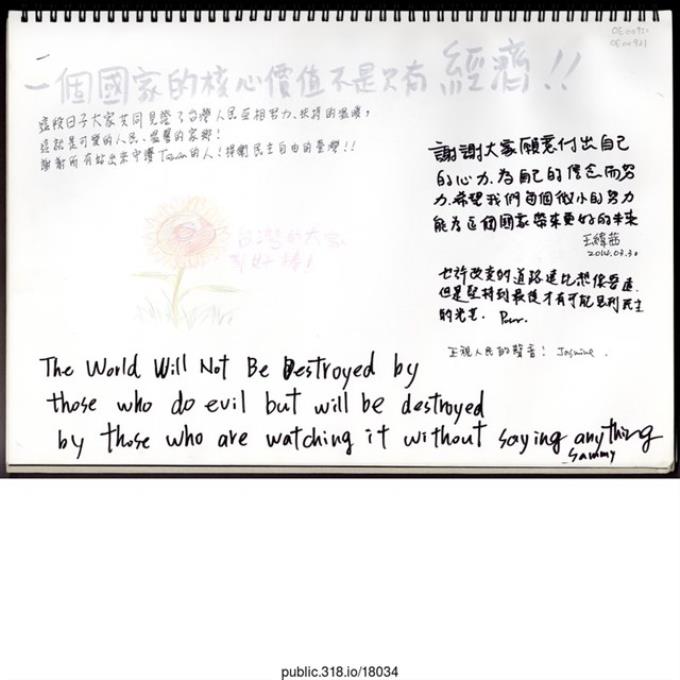 OE00921
OE00921
一個國家的核心價值不是只有 經濟!!
這段日子大家共同見證了台灣人民互相努力、扶持的溫暖,
這就是可愛的人民、溫馨的家鄉!
謝謝所有站出來守護Taiwan的人!捍衛民主自由的臺灣!!
台灣的大家
都好棒!
謝謝大家願意付出自己
的心力.為自己的信念而努
力.希望我們每個微小的努力
能為這個國家帶來更好的未來
王緯茜
2014.03.30
也许改变的道路遠比想像吾遠
但是堅持到最後才有可能見到民主
的光芒.
正視人民的聲音! Jasmine.
The World Will Not Be Destroyed by
those who do evil but will be destroyed
by those who are watching it without saying anything
Sammy
public.318.io/18034